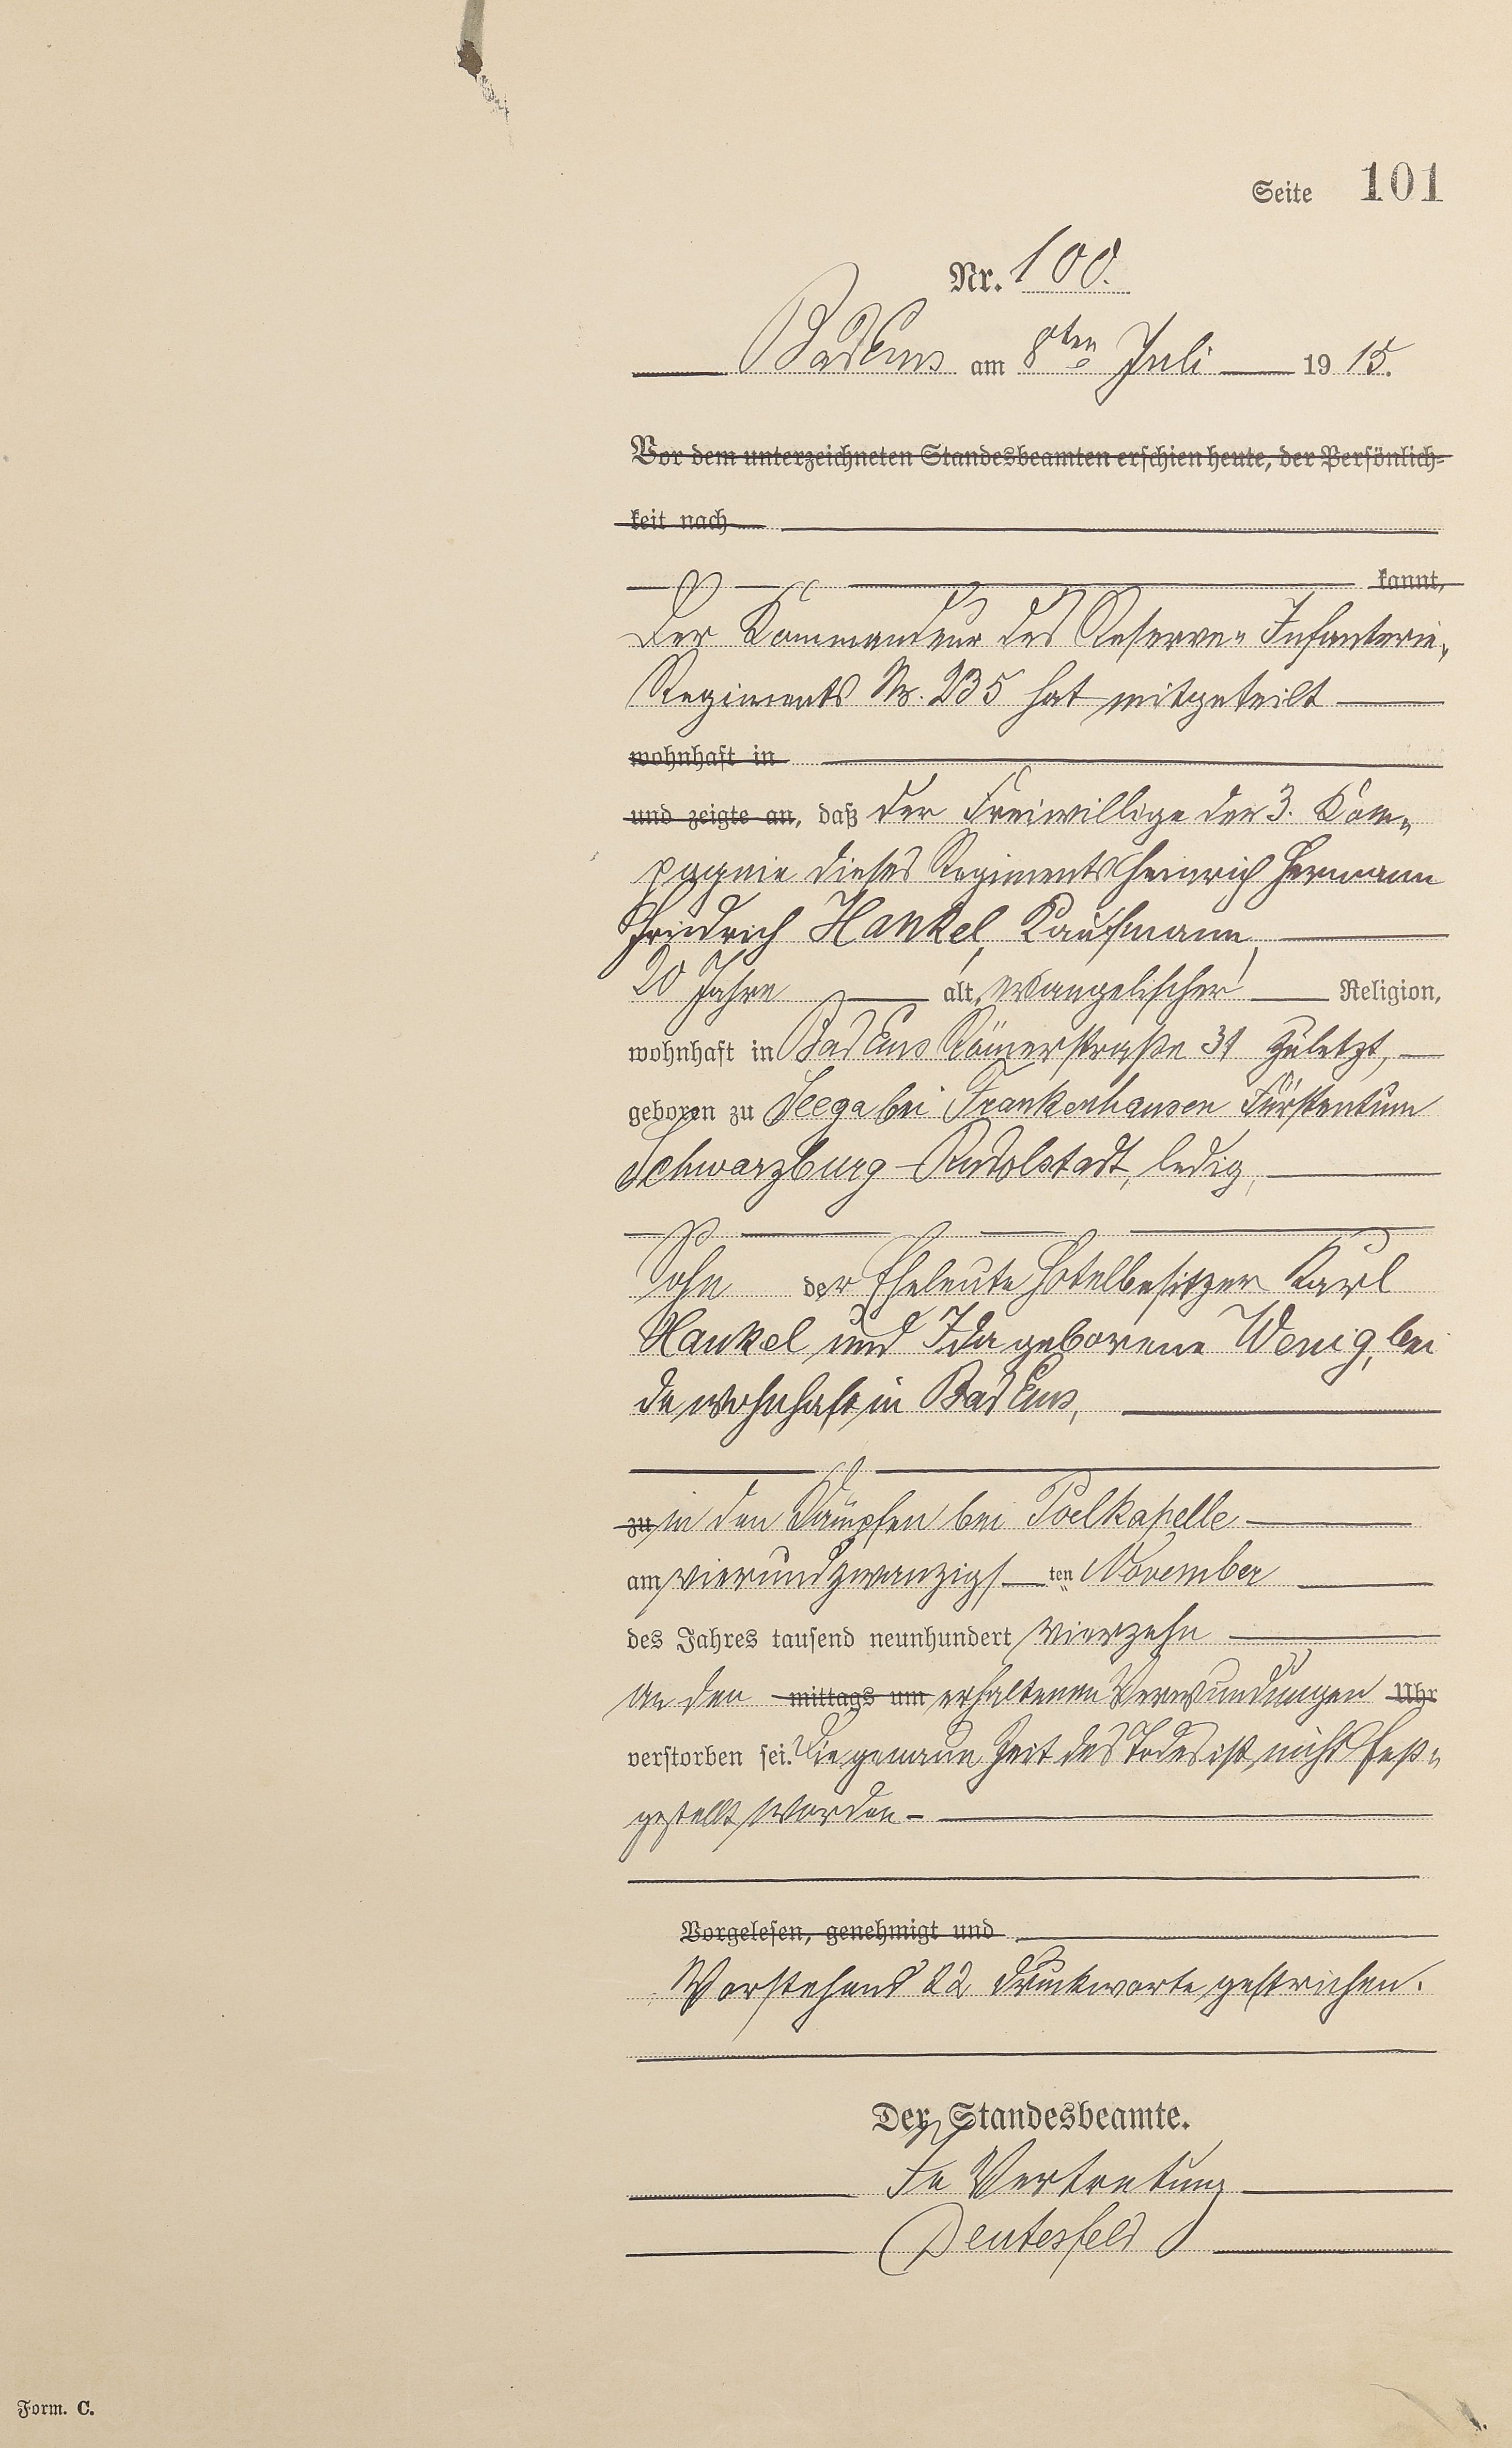 Seite 101
Nr. 100.
Bad Ems am 8ten Juli 1915.
Vor dem unterzeichneten Standesbeamten erschien heute, der Persönlich-
keit nach
kannt,
Der Kommandeur des Reserve-Infanterie-
Regiments Nr. 235 hat mitgeteilt
wohnhaft in
und zeigte an, daß der Freiwillige der 3. Kom-
pagnie dieses Regiments Heinrich Hermann
Friedrich Hankel, Kaufmann,
20 Jahre alt, evangelischer Religion,
wohnhaft in Bad Ems Römerstraße 31 zuletzt,
geboren zu Seega bei Frankenhausen Fürstentum
Schwarzburg-Rudolstadt, ledig,
Sohn der Eheleute Hotelbesitzer Karl
Hankel und Ida geborene Wenig, bei
de wohnhaft in Bad Ems,
zu in den Kämpfen bei Poelkapelle
am vierundzwanzigsten November
des Jahres tausend neunhundert vierzehn
an den mittags um erhaltenen Verwundungen Uhr
verstorben sei. Die genaue Zeit des Todes ist nicht fest-
gestellt worden -
Vorgelesen, genehmigt und
Vorstehend 22 Druckworte gestrichen.
Der Standesbeamte.
In Vertretung
Deutesfeld
Form. C.